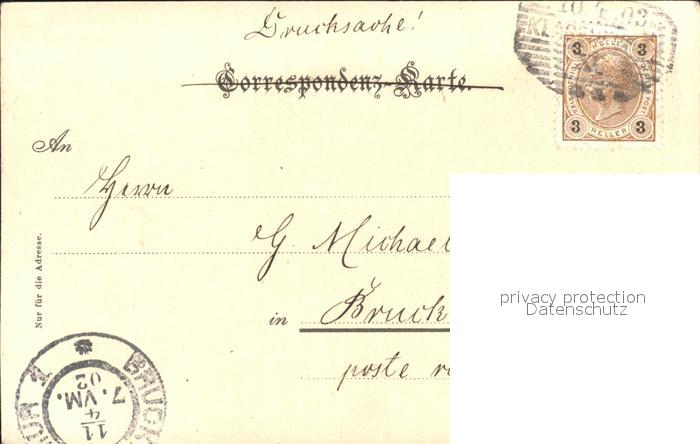 Drucksache!
Correspondenz-Karte.
3 HELLER 3
3 HELLER 3
An
Herrn
G Michael
in Bruck
poste
Nur für die Adresse.
BRUCK
MUR 1
11/4
7. VM.
02
privacy protection
Datenschutz